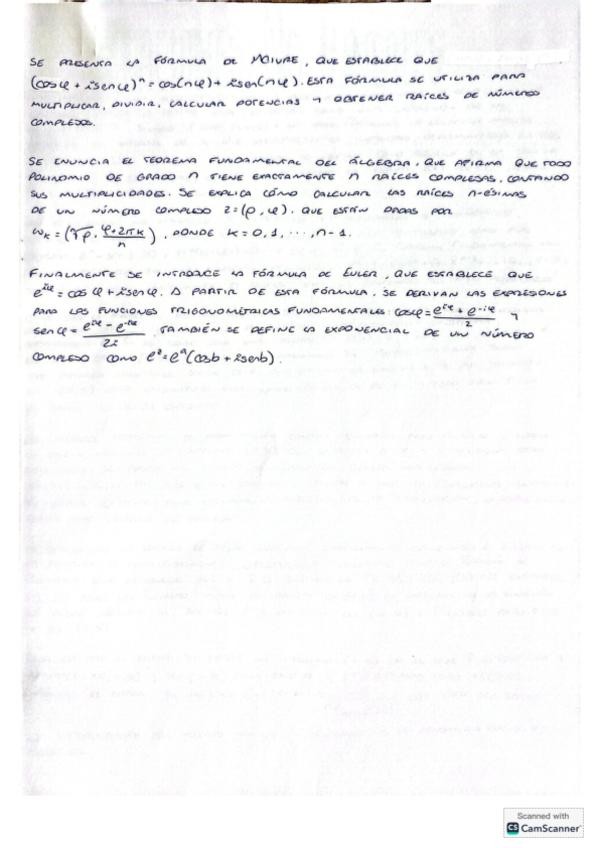 SE PRESENTA LA FÓRMULA DE MOIURE, QUE ESTABLECE QUE
(cosφ + isenφ)ⁿ = cos(nφ) + isen(nφ). ESTA FÓRMULA SE UTILIZA PARA
MULTIPLICAR, DIVIDIR, CALCULAR POTENCIAS Y OBTENER RAÍCES DE NÚMEROS
COMPLEJOS.
SE ENUNCIA EL TEOREMA FUNDAMENTAL DEL ÁLGEBRA, QUE AFIRMA QUE TODO
POLINOMIO DE GRADO n TIENE EXACTAMENTE n RAÍCES COMPLEJAS, CONTANDO
SUS MULTIPLICIDADES. SE EXPLICA CÓMO CALCULAR LAS RAÍCES n-ÉSIMAS
DE UN NÚMERO COMPLEJO z=(ρ,φ). QUE ESTÁN DADAS POR
ωₖ = (ⁿ√ρ, (φ+2πk)/n), DONDE K=0,1,...,n-1.
FINALMENTE SE INTRODUCE LA FÓRMULA DE EULER, QUE ESTABLECE QUE
e^{iφ} = cos φ + isenφ. A PARTIR DE ESTA FÓRMULA, SE DERIVAN LAS EXPRESIONES
PARA LAS FUNCIONES TRIGONOMÉTRICAS FUNDAMENTALES: cosφ = (e^{iφ} + e^{-iφ})/2 Y
senφ = (e^{iφ} - e^{-iφ})/2i. TAMBIÉN SE DEFINE LA EXPONENCIAL DE UN NÚMERO
COMPLEJO COMO e^z = e^a(cosb + isenb).
Scanned with
CS CamScanner